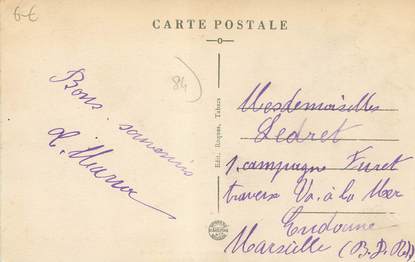 6-€
CARTE POSTALE
84
Bons souvenirs
Edit. Roques, Tabacs
Mesdemoiselles
Ledret
1. campagne Furet
traverse Va. à la Mer
Endoume
Marseille (B. D. R)